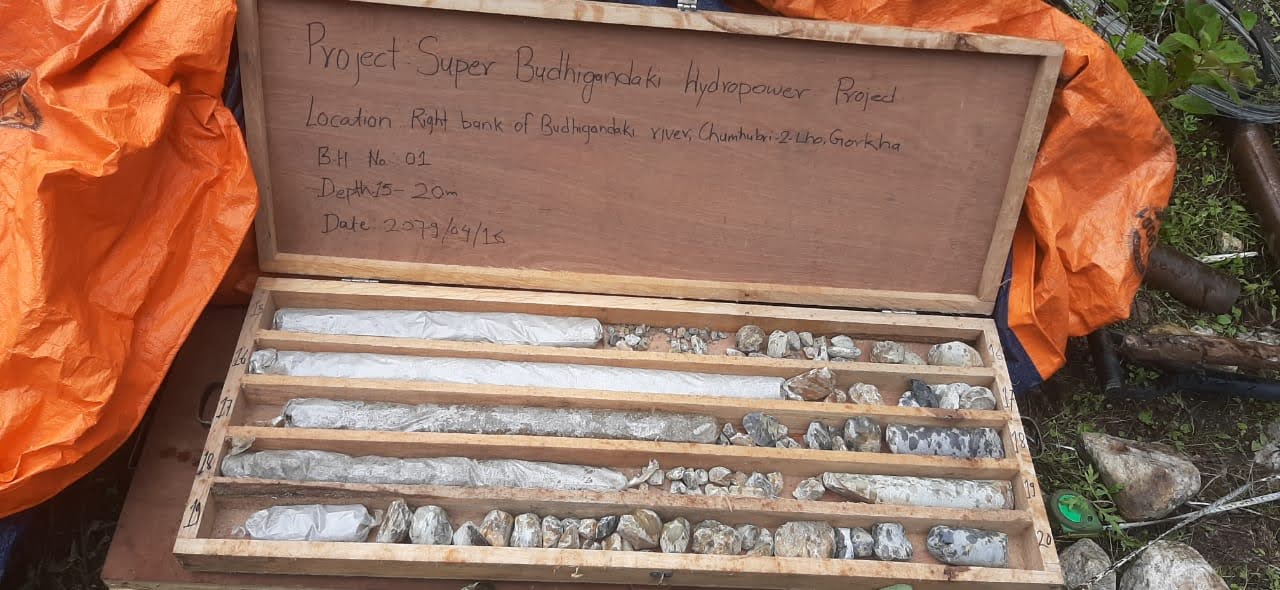 Project: Super Budhigandaki Hydropower Project
Location Right bank of Budhigandaki river, Chumhubri-2-Lho, Gorkha
B.H No: 01
Depth:15-20m
Date: 2079/04/16
15 16
16 17
17 18
18 19
19 20